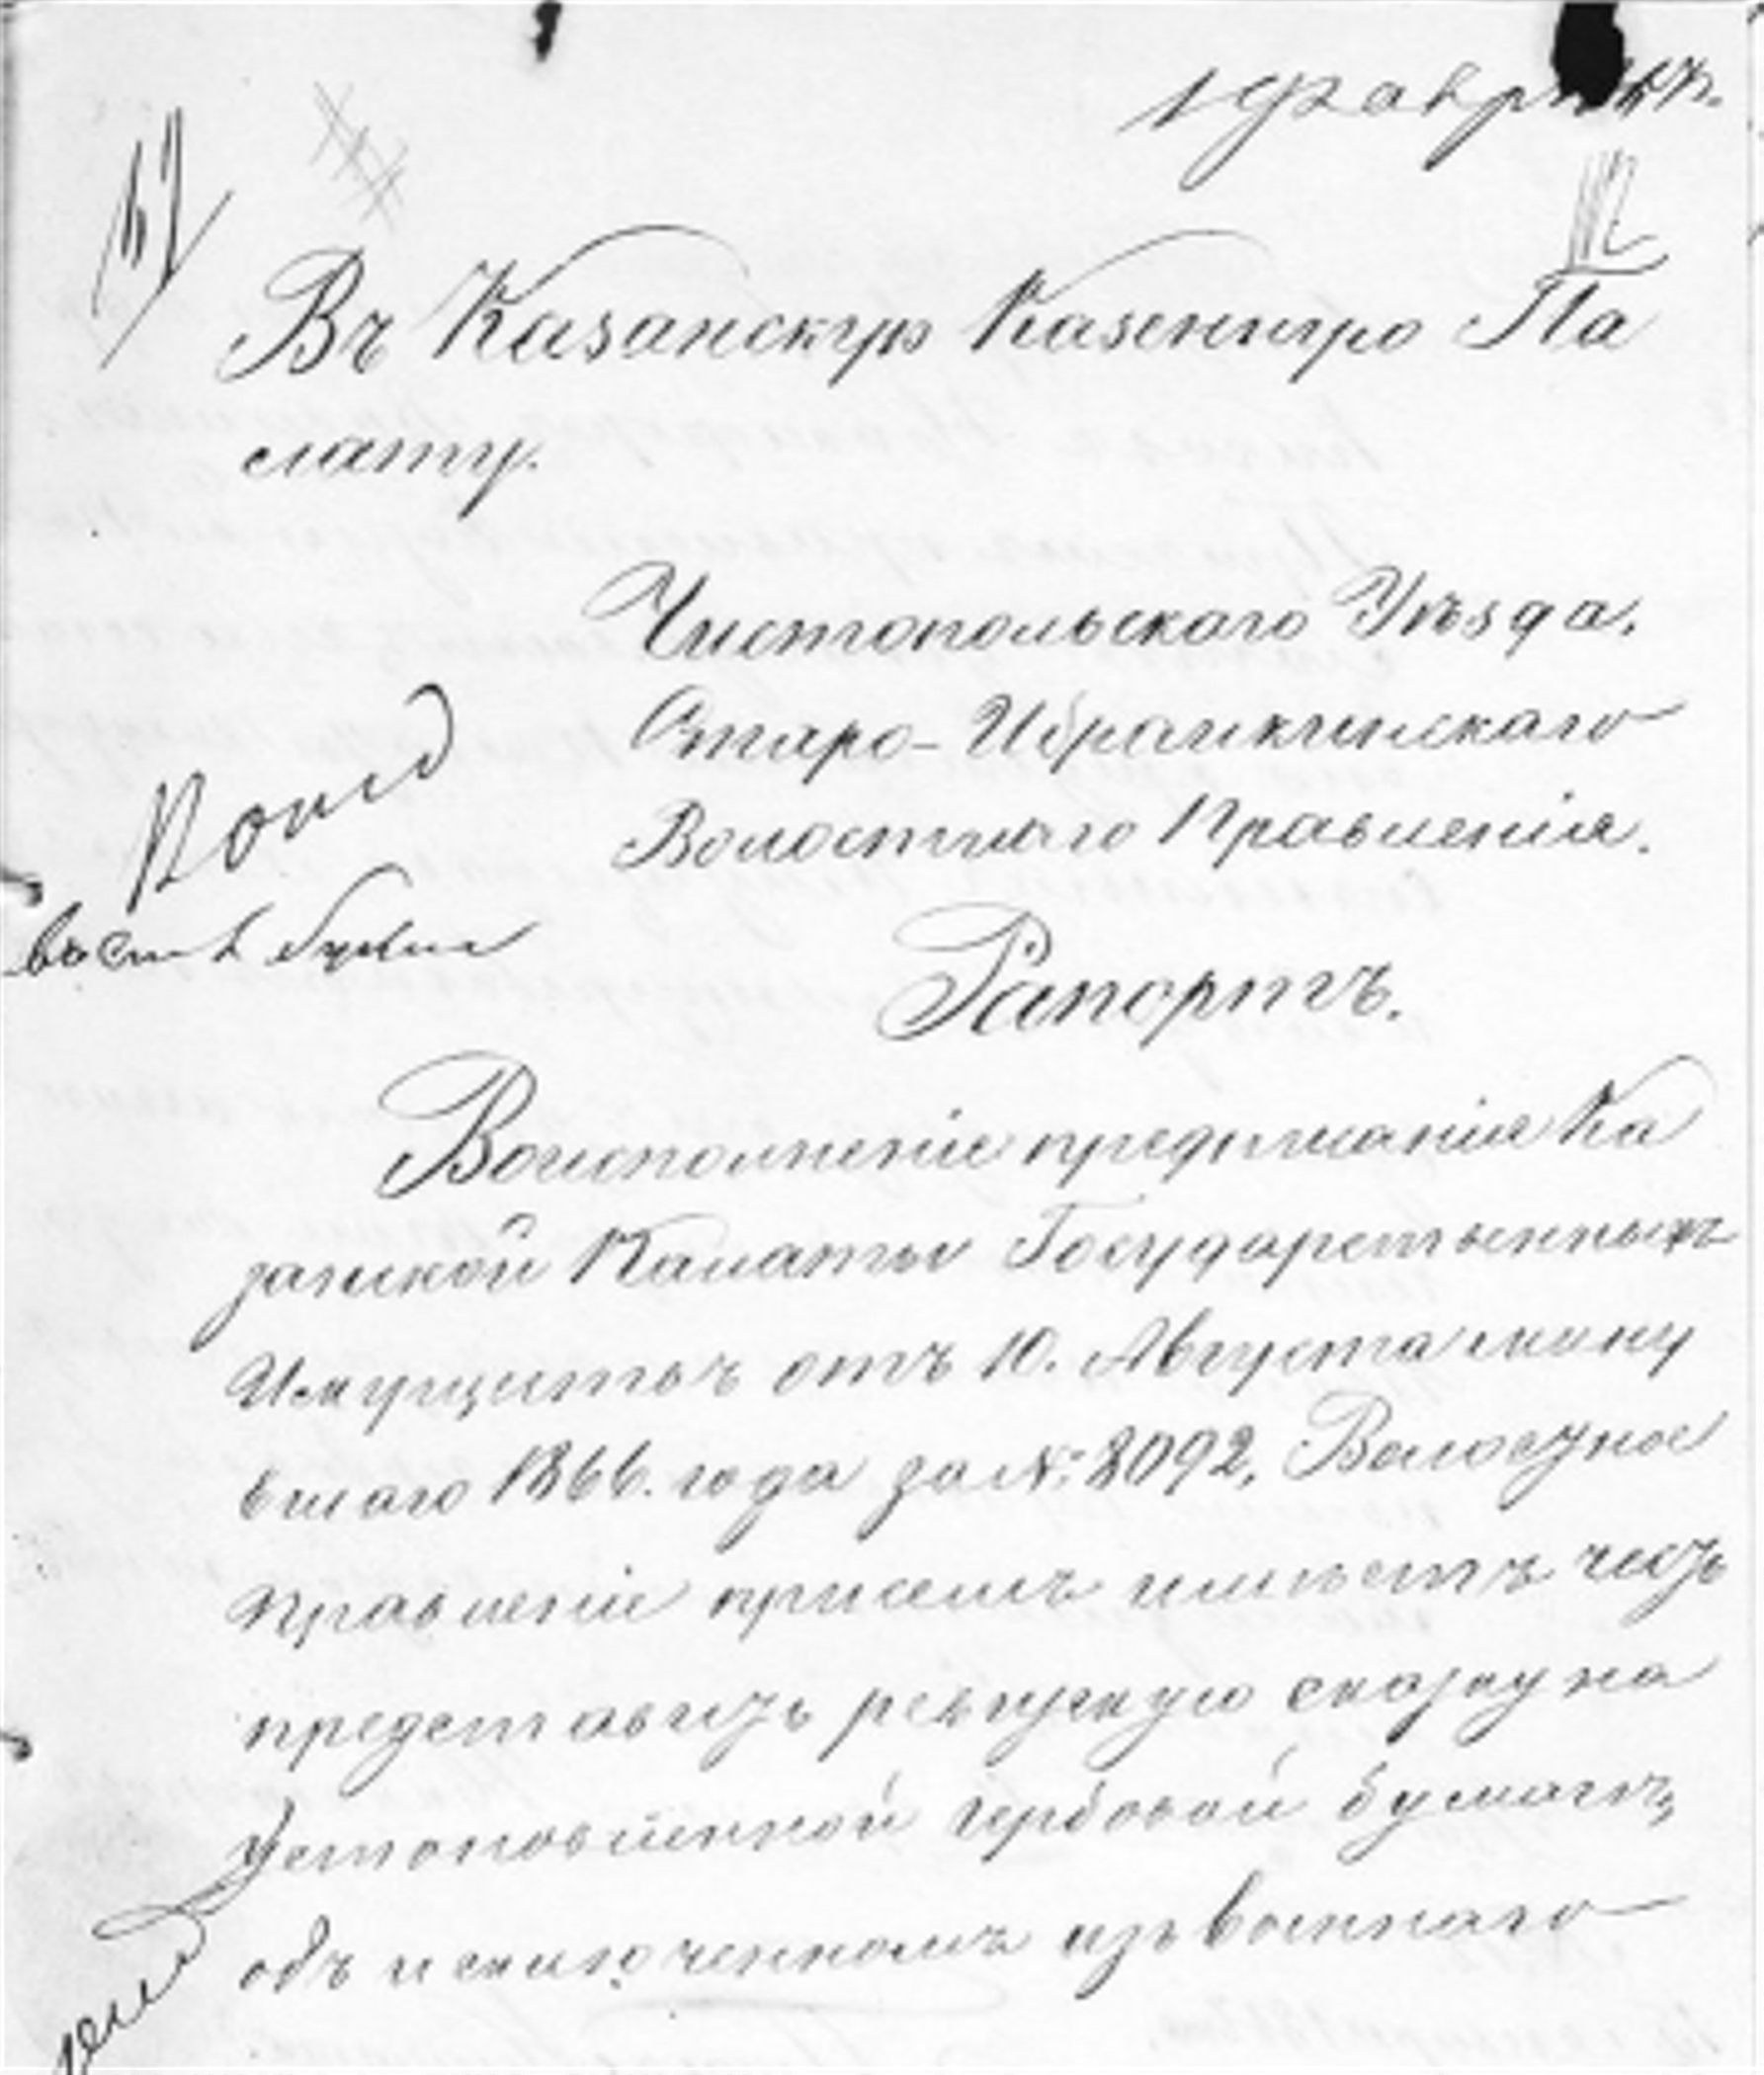 Въ Казанскую Казенную Па
лату.
Чистопольскаго Уѣзда.
Старо-Ибрайкинскаго
Волостнаго Правленія.
Рапортъ.
Воисполненіе предписанія Ка
занской Палаты Государственныхъ
Имуществъ отъ 10. Августа мину
вшаго 1866. года за №: 8092, Волосное
Правленіе присемъ имѣетъ чезь
представизь ревизкую сказку на
Установленной гербовой бумагѣ,
объ исключенномъ изъ военнаго